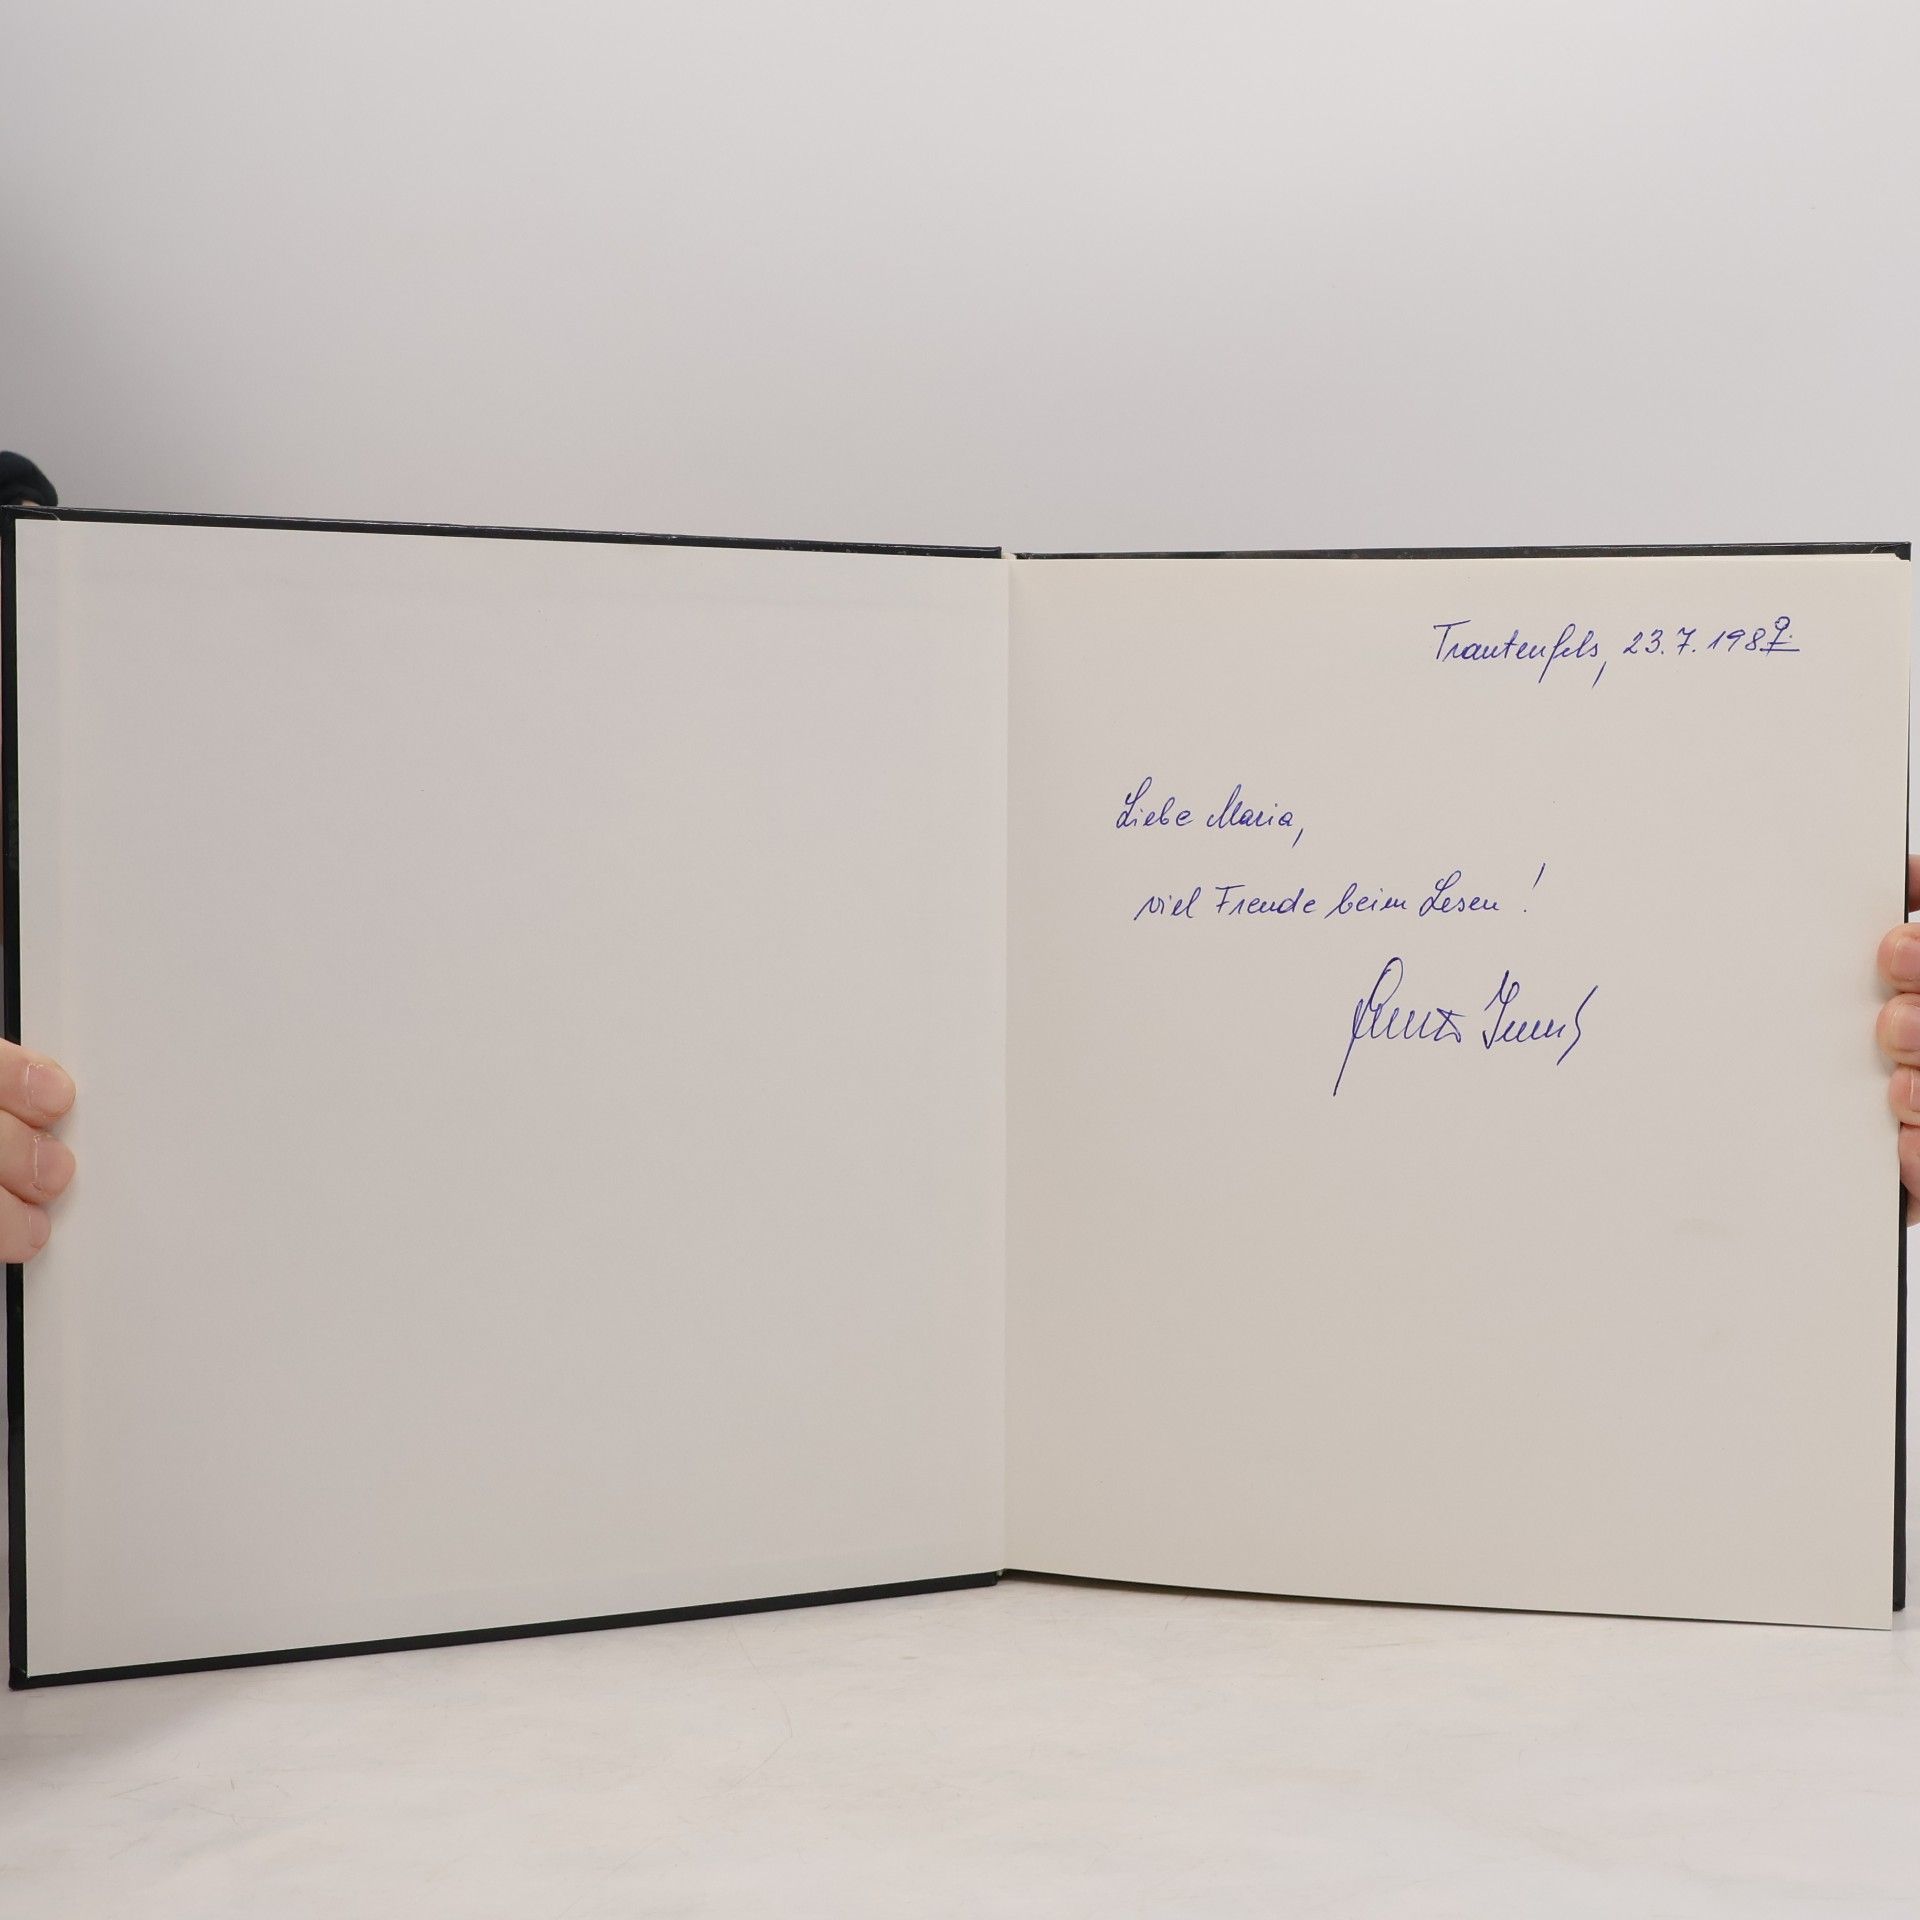 Trautenfels, 23.7.1989.
Liebe Maria,
viel Freude beim Lesen!